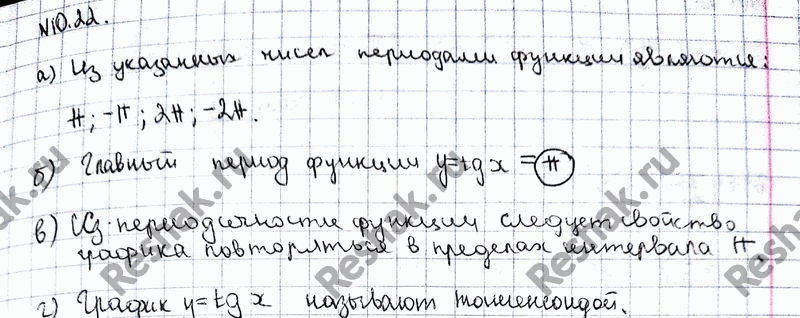 №10.22.
а) Из указанных чисел периодами функции являются:
π; -π; 2π; -2π.
б) Главный период функции y=tg x = π
в) Из периодичности функции следует свойство
графика повторяться в пределах интервала π.
г) График y=tg x называют тангенсоидой.
Reshak.ru
Reshak.ru
Reshak.ru
Reshak.ru